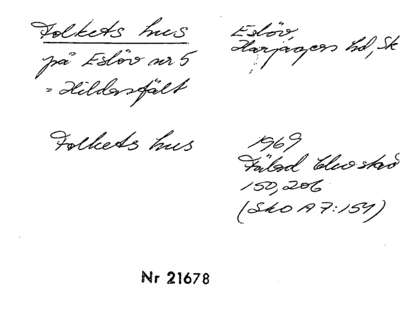 Folkets hus
på Eslöv nr 5
= Hildesfält
Folkets hus
Eslöv,
Harjagers hd, Sk
1969
150,206
(Sko A7:154)
Nr 21678